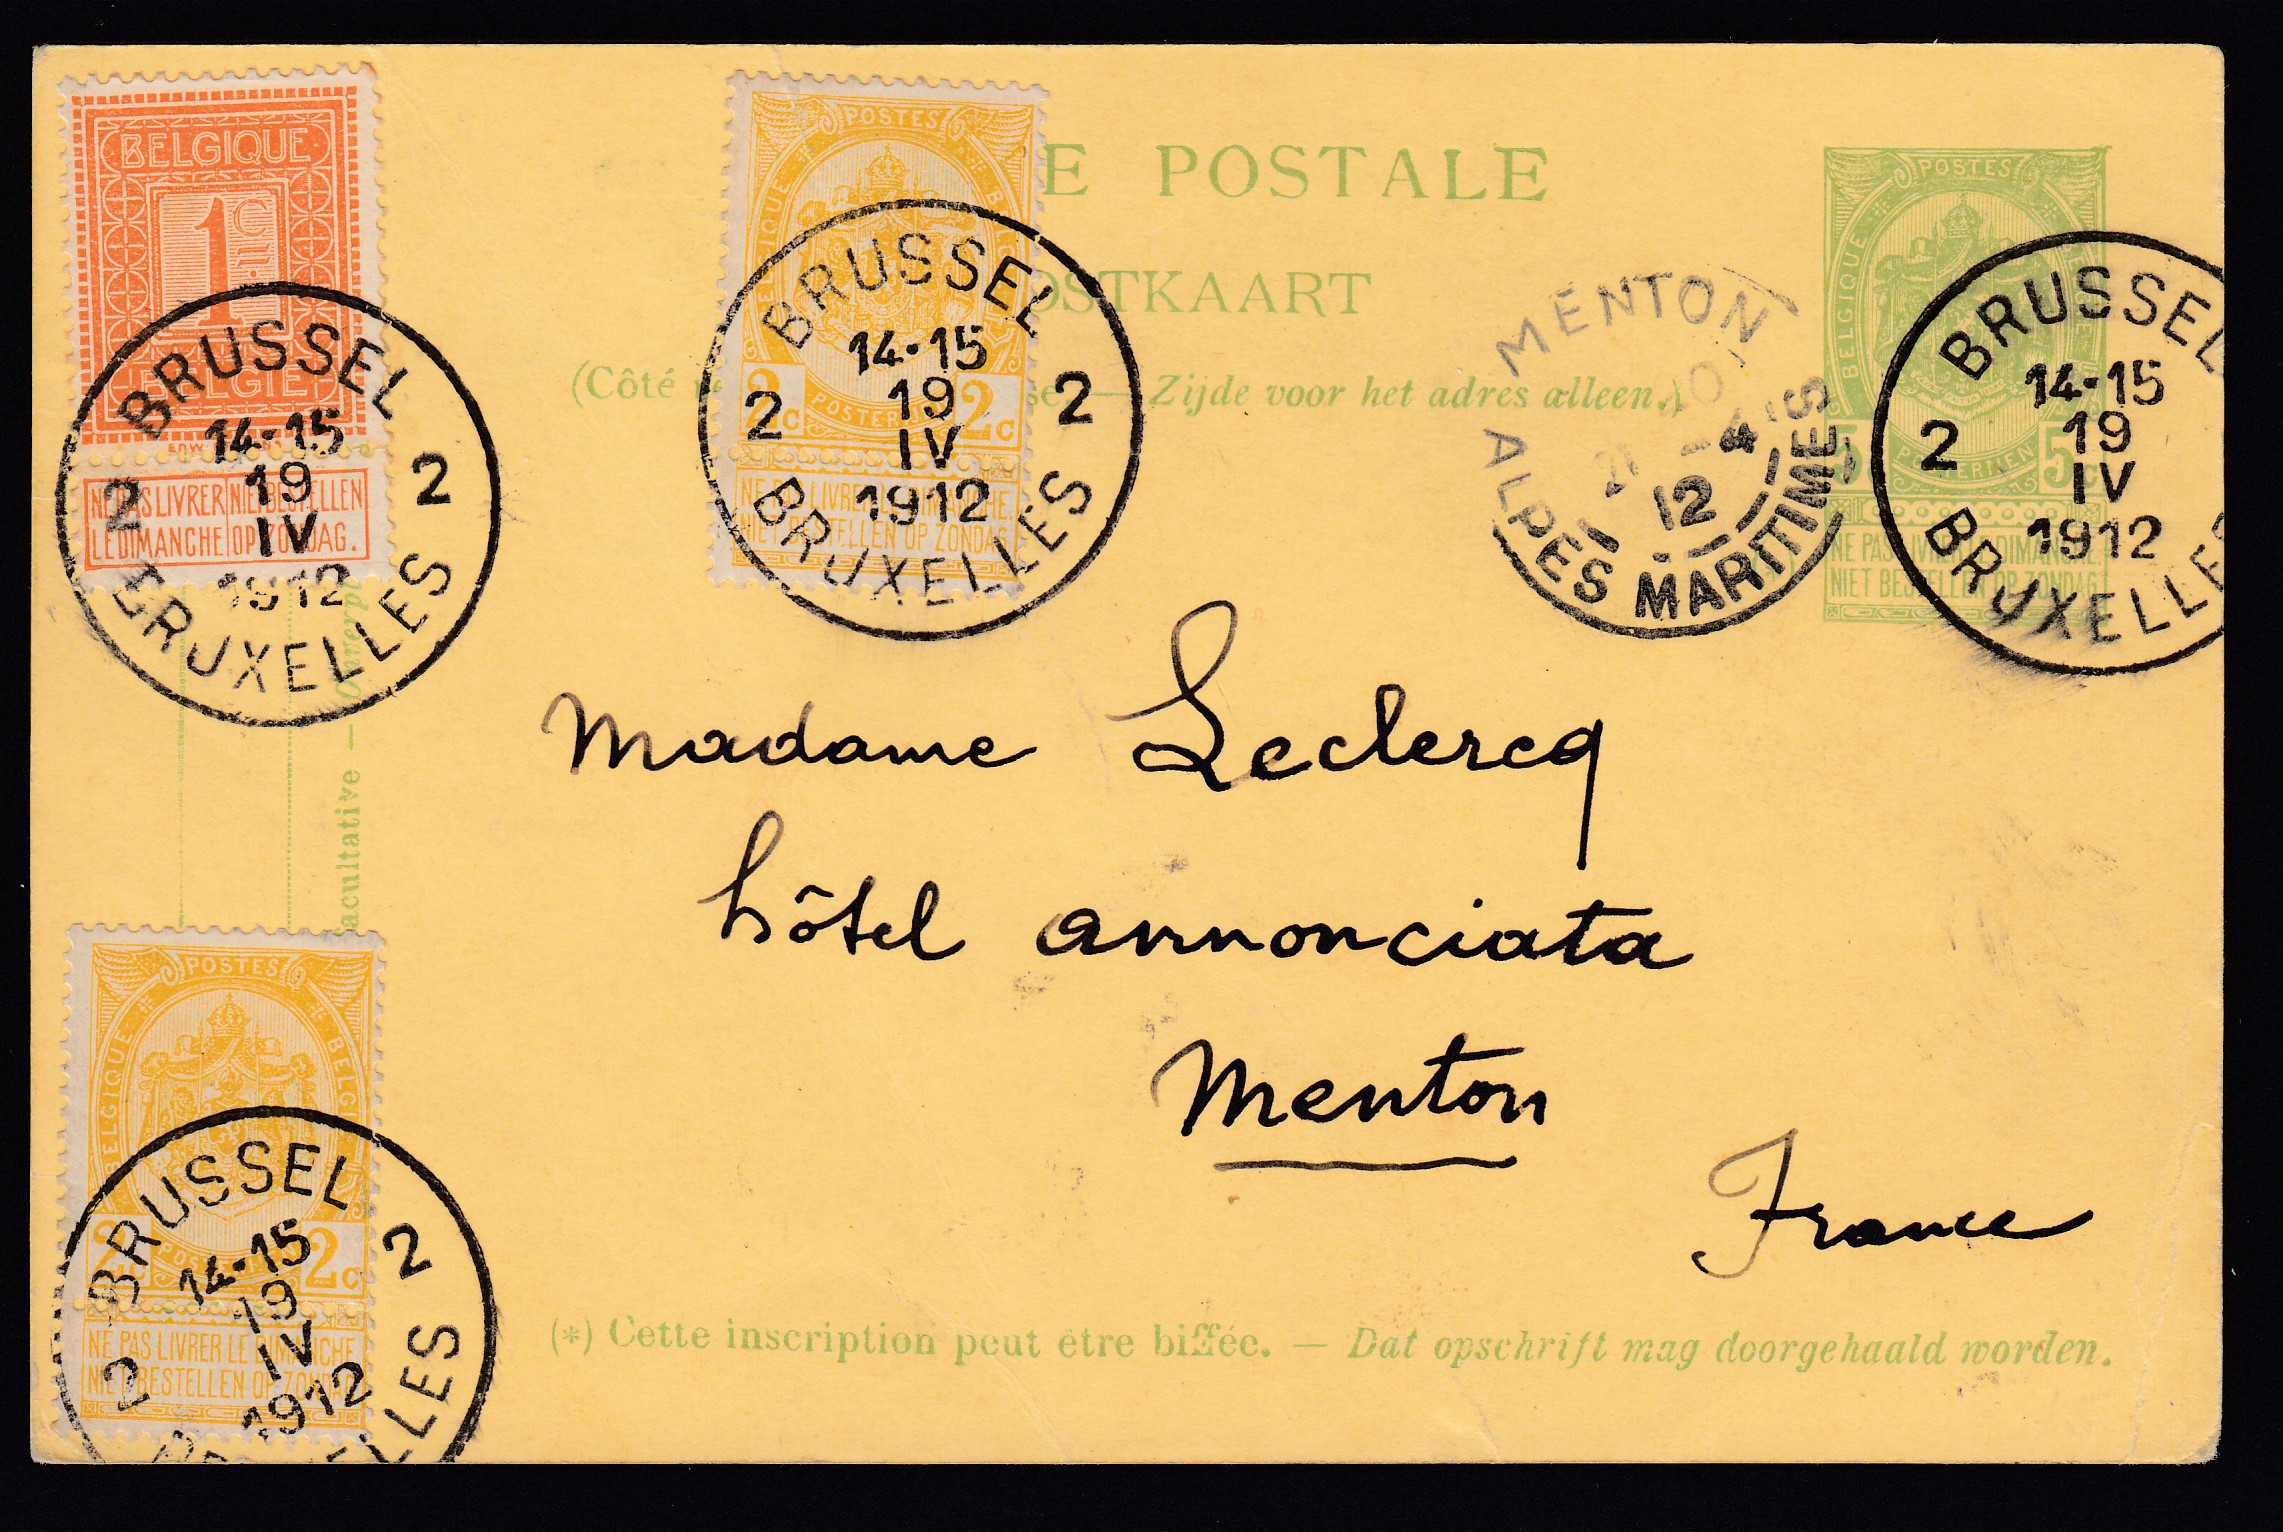 BELGIQUE
1C
BELGIË
NE PAS LIVRER LE DIMANCHE
NIET BESTELLEN OP ZONDAG.
BRUSSEL
14-15
19
IV
1912
2 2
BRUXELLES
POSTES
BELGIQUE
2c 2c
POSTERIJEN
NE PAS LIVRER LE DIMANCHE
NIET BESTELLEN OP ZONDAG
BRUSSEL
14-15
19
IV
1912
2 2
BRUXELLES
E POSTALE
OSTKAART
(Côté
— Zijde voor het adres alleen.)
MENTON
4
12
ALPES MARITIMES
POSTES
BELGIQUE
5c
NE PAS LIVRER LE DIMANCHE
NIET BESTELLEN OP ZONDAG
BRUSSEL
14-15
19
IV
1912
2
BRUXELLES
facultative —
Madame Leclercq
hôtel annonciata
Menton
France
POSTES
BELGIQUE BELGI
2c 2c
NE PAS LIVRER LE DIMANCHE
NIET BESTELLEN OP ZONDAG
BRUSSEL
14-15
19
IV
1912
2 2
(*) Cette inscription peut être biffée. — Dat opschrift mag doorgehaald worden.